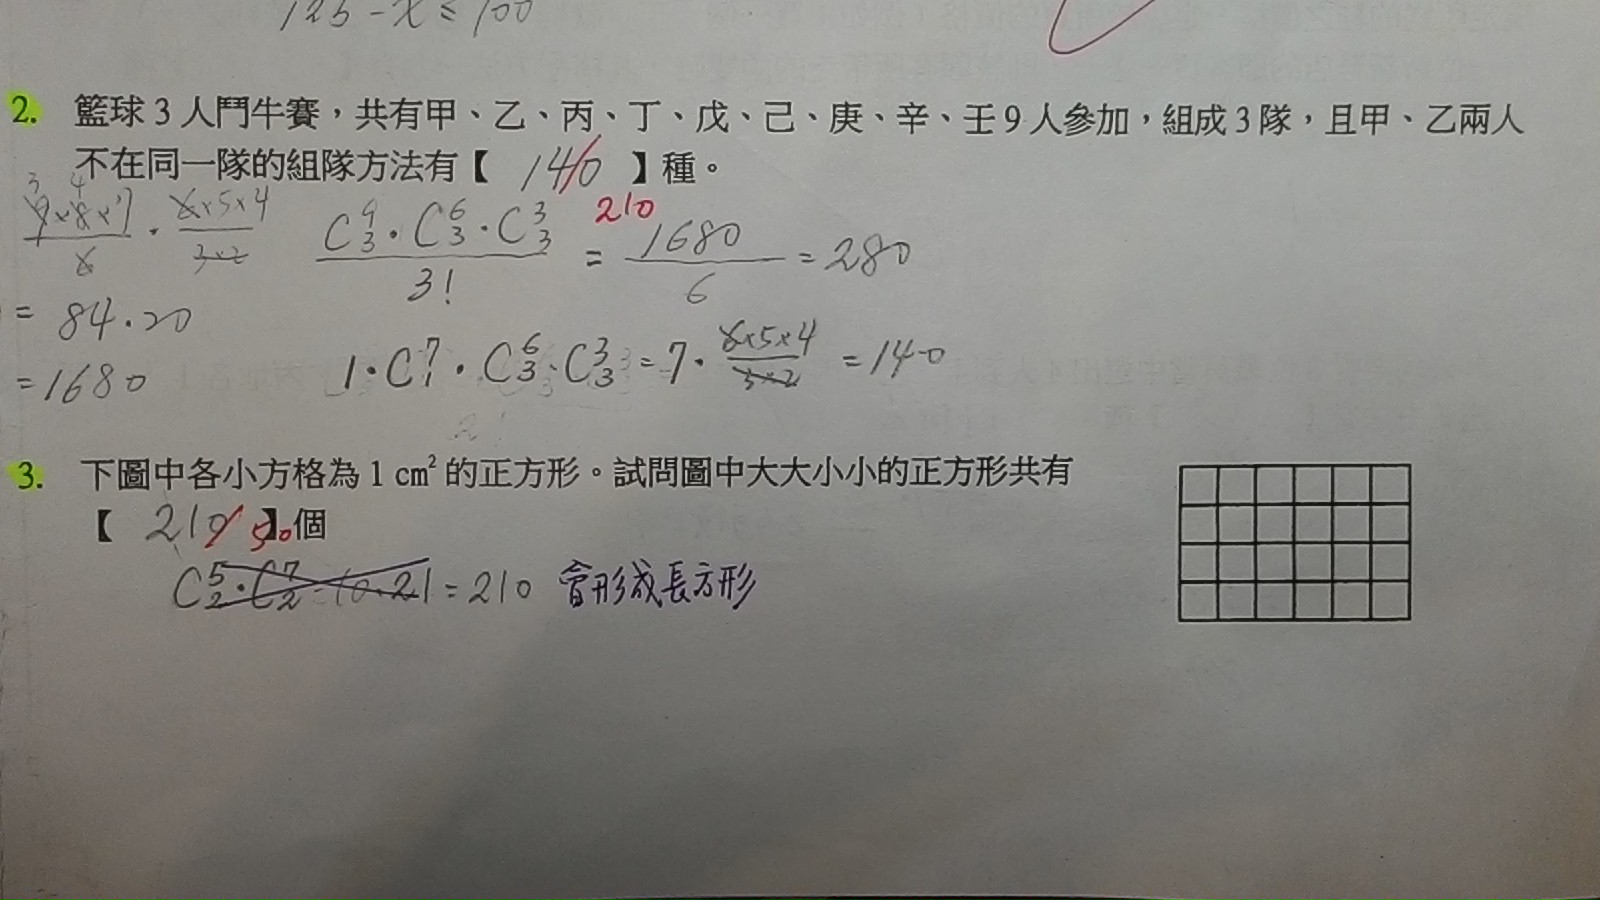 125 - x ≤ 100
2. 籃球 3 人鬥牛賽，共有甲、乙、丙、丁、戊、己、庚、辛、壬 9 人參加，組成 3 隊，且甲、乙兩人
不在同一隊的組隊方法有【 140 】種。
210
3 4
9×8×7/6 · 6×5×4/3×2
C⁹₃·C⁶₃·C³₃/3! = 1680/6 = 280
= 84·20
= 1680
1·C⁷₁·C⁶₃·C³₃ = 7·6×5×4/3×2 = 140
3. 下圖中各小方格為 1 cm² 的正方形。試問圖中大大小小的正方形共有
【 210 50 】個
C⁵₂·C⁷₂ = 10·21 = 210 會形成長方形